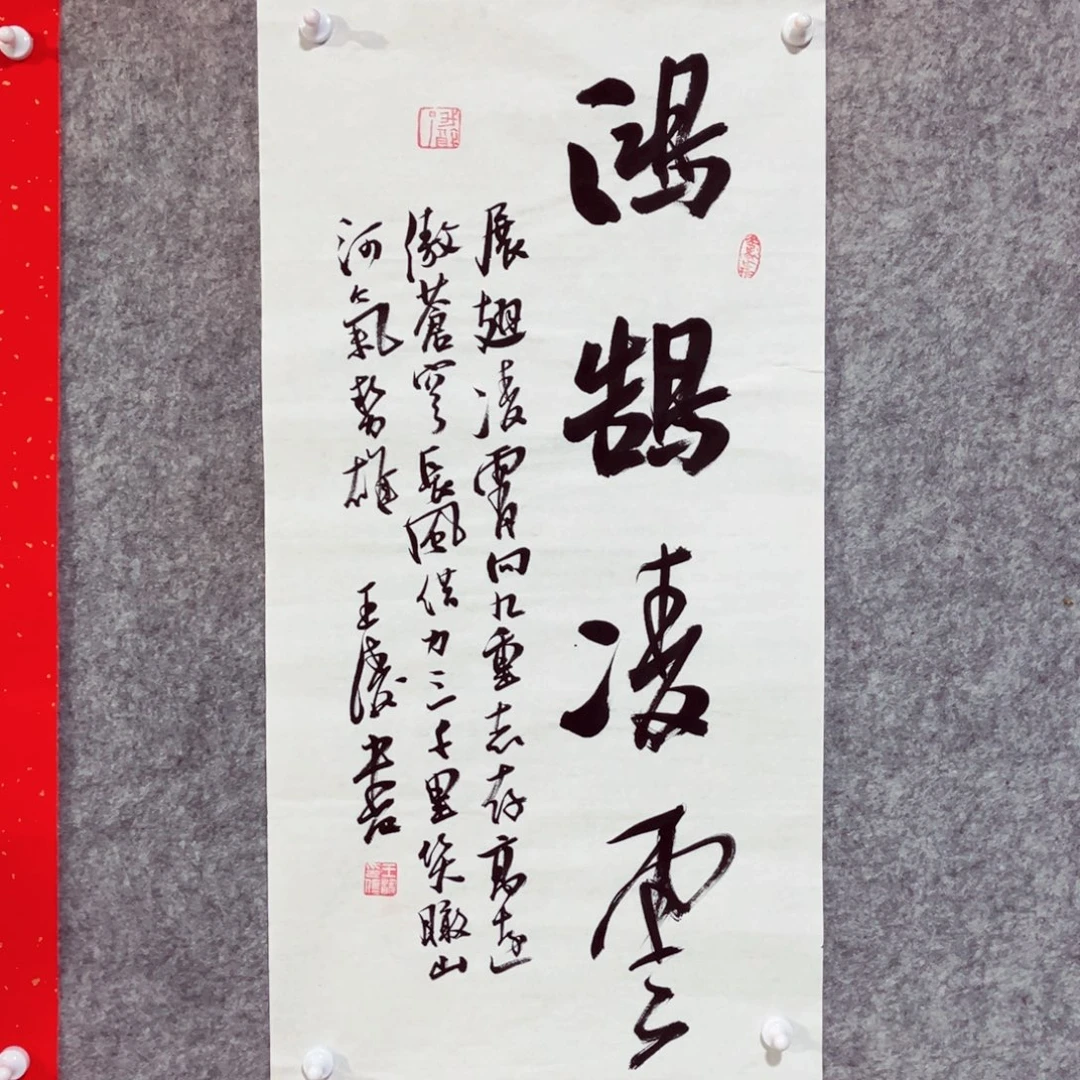 鴻鵠凌雲
展翅凌霄向九重志存高遠
傲蒼穹長風借力三千里笑瞰山
河氣勢雄 王 書